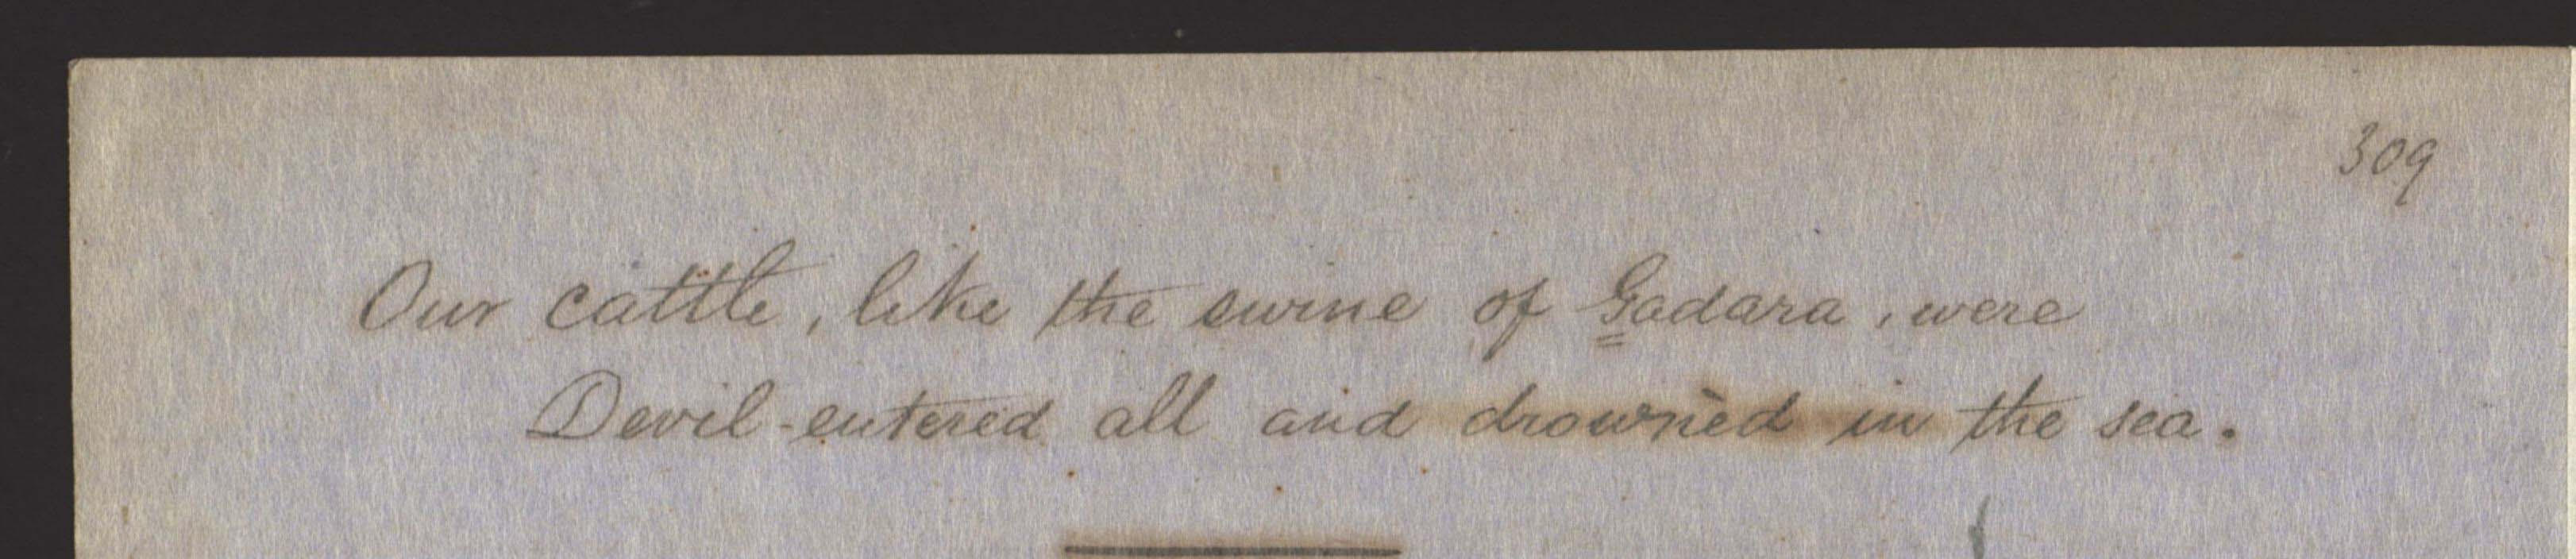 309
Our cattle, like the swine of Gadara, were
Devil-entered all and drowned in the sea.